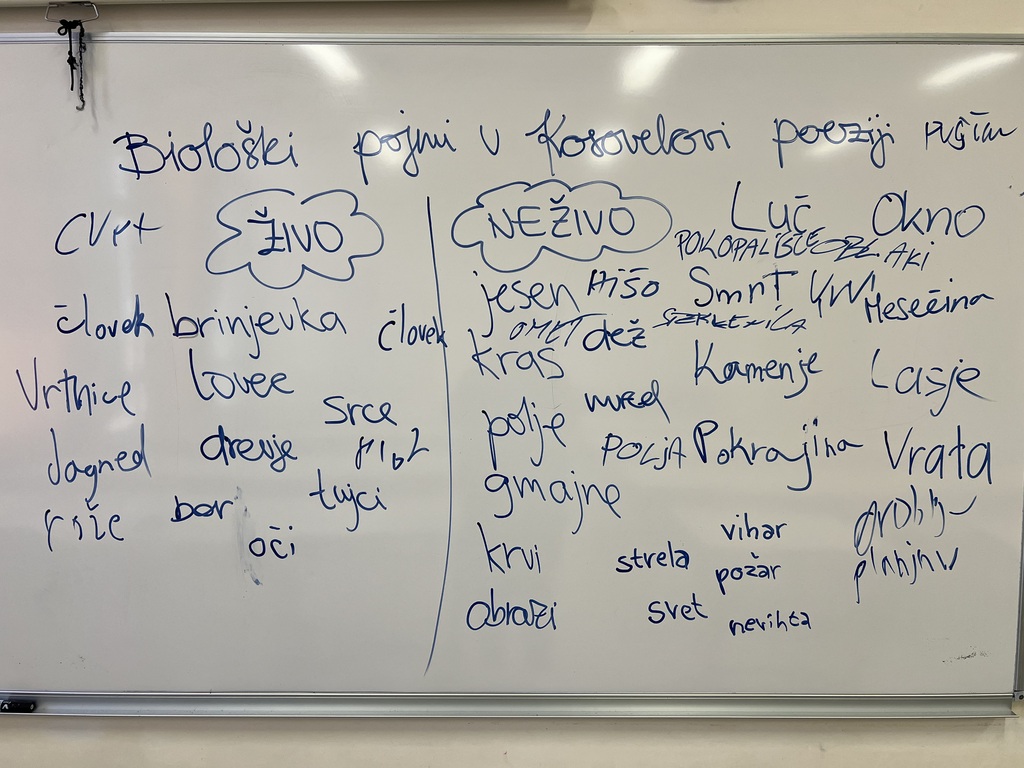 Biološki pojmi v Kosovelovi poeziji
ŽIVO
človek brinjevka človek
Vrtnice lovec
srce
Jagned drevje
rože bor tujci
oči
NEŽIVO Luč Okno
POKOPALIŠČE OBLAKI
jesen HIŠO Smrt Mesečina
OMET dež
kras Kamenje Lasje
polje mired
POLJA Pokrajina Vrata
gmajne
krvi strela vihar
požar planjav
obrazi svet nevihta